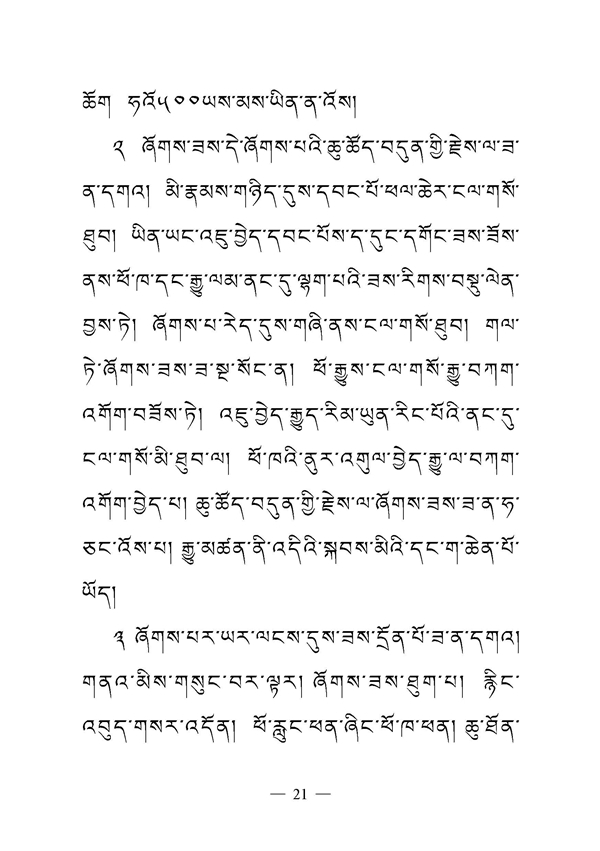 ཆོག ཧའོ༥༠༠ཡས་མས་ཡིན་ན་འོས།
༢ ཞོགས་ཟས་དེ་ཞོགས་པའི་ཆུ་ཚོད་བདུན་གྱི་རྗེས་ལ་ཟ་
ན་དགའ། མི་རྣམས་གཉིད་དུས་དབང་པོ་ཕལ་ཆེར་ངལ་གསོ་
ཐུབ། ཡིན་ཡང་འཇུ་བྱེད་དབང་པོས་ད་དུང་དགོང་ཟས་ཟོས་
ནས་ཕོ་ཁ་དང་རྒྱུ་ལམ་ནང་དུ་ལྷག་པའི་ཟས་རིགས་བསྡུ་ལེན་
བྱས་ཏེ། ཞོགས་པ་རེད་དུས་གཞི་ནས་ངལ་གསོ་ཐུབ། གལ་
ཏེ་ཞོགས་ཟས་ཟ་སྔ་སོང་ན། ཕོ་རྒྱུས་ངལ་གསོ་རྒྱུ་བཀག་
འགོག་བཟོས་ཏེ། འཇུ་བྱེད་རྒྱུད་རིམ་ཡུན་རིང་པོའི་ནང་དུ་
ངལ་གསོ་མི་ཐུབ་ལ། ཕོ་ཁའི་ནུར་འགུལ་བྱེད་རྒྱུ་ལ་བཀག་
འགོག་བྱེད་པ། ཆུ་ཚོད་བདུན་གྱི་རྗེས་ལ་ཞོགས་ཟས་ཟ་ན་ཧ་
ཅང་འོས་པ། རྒྱུ་མཚན་ནི་འདིའི་སྐབས་མིའི་དང་ག་ཆེན་པོ་
ཡོད།
༣ ཞོགས་པར་ཡར་ལངས་དུས་ཟས་དྲོན་པོ་ཟ་ན་དགའ།
གནའ་མིས་གསུང་བར་ལྟར། ཞོགས་ཟས་ཐུག་པ། རྙིང་
འབུད་གསར་འདོན། ཕོ་རླུང་ཕན་ཞིང་ཕོ་ཁ་ཕན། ཆུ་ཐོན་
— 21 —